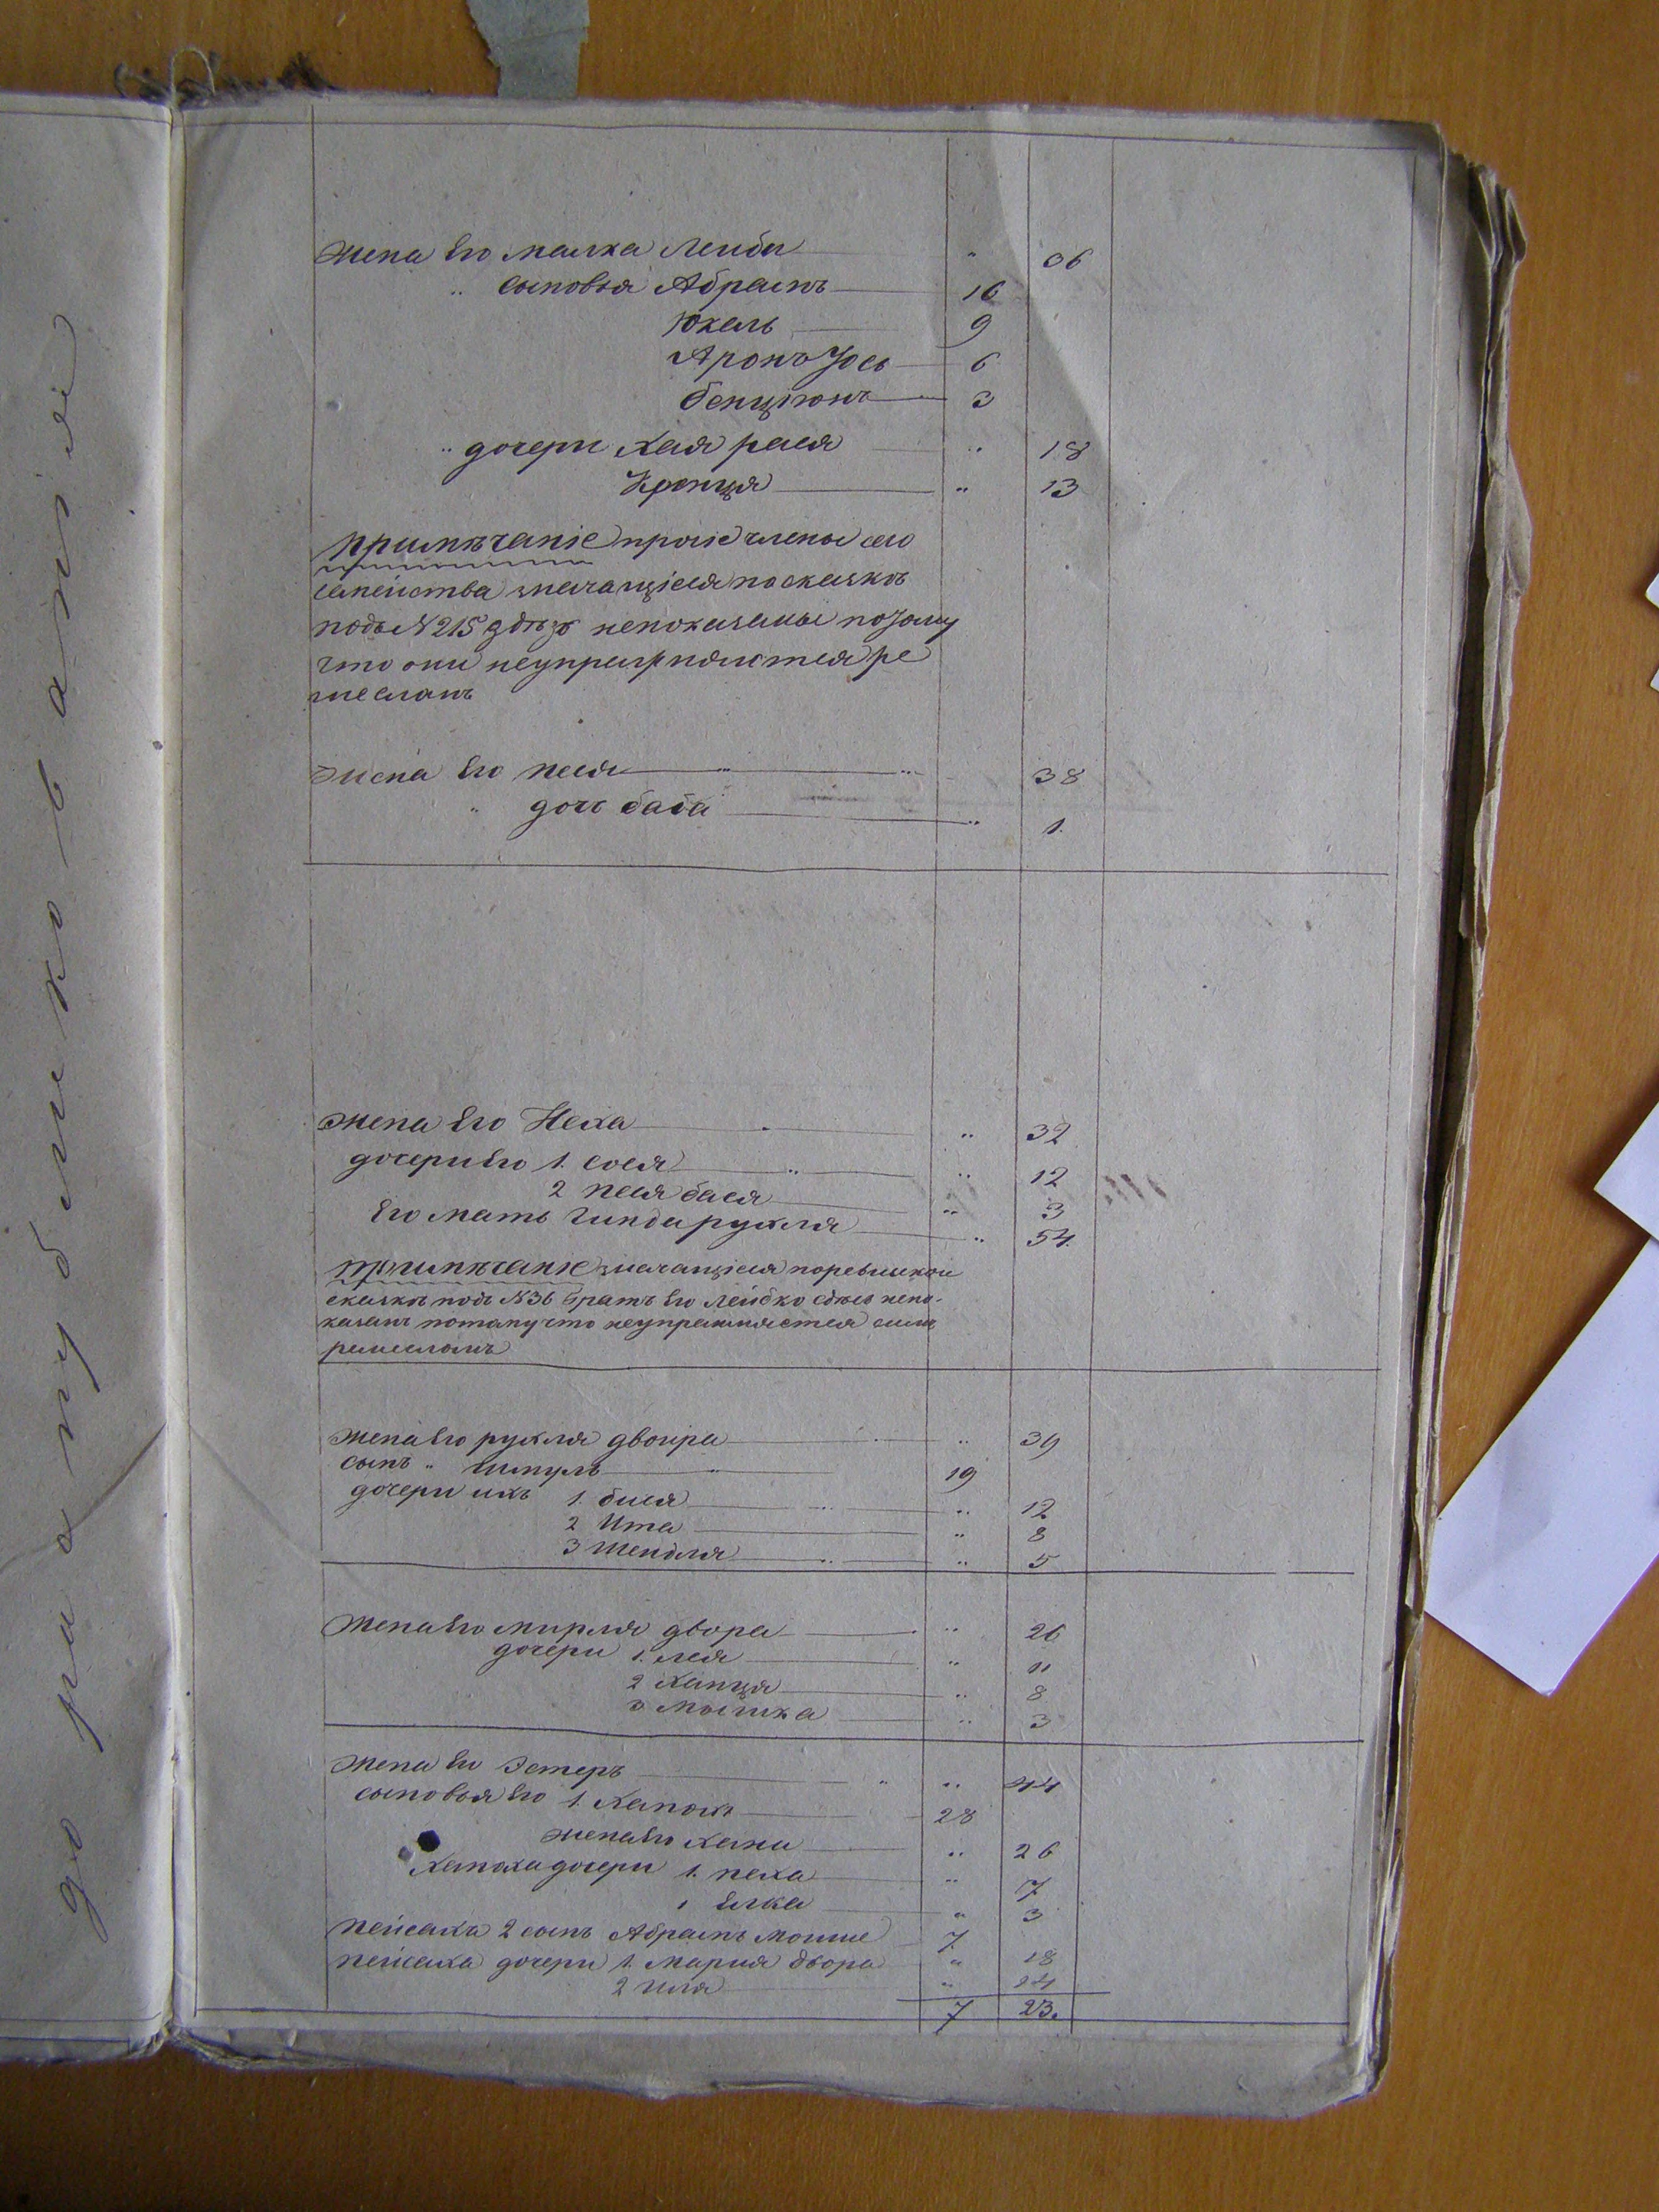 Жена Его Малка Лейбы " 36
" сыновья Абрамъ 16
Юкель 9
Аронъ Іось 6
Бенціонъ 3
" дочери Хая рася " 18
Кронця " 13
Примѣчаніе прочіе члены сего
семейства значащіеся по сказкѣ
подъ N 215 здѣсь непоказаны потому
что они неупражняются ре
месломъ
Жена Его Песя " 38
" дочь баба " 1.
Жена Его Неха " 32
дочери Его 1. сося " 12
2 песя бася " 3
Его мать Гинда рухля " 54.
Примѣчаніе значащіеся поревизкой
сказкѣ подъ N 36 братъ Его Лейбко сдѣсь непо-
казанъ потому что неупражняется симъ
ремесломъ
Жена Его рухля двойра " 39
сынъ " шмуль 19
дочери ихъ 1. бися " 12
2 Ита " 8
3 Шейдля " 5
Жена Его мирля двора " 26
дочери 1. лея " 11
2 Ханця " 8
3 Мышка " 3
Жена Его Эстеръ " 44
сыновья Его 1. Ханохъ 28
жена Его хана " 26
Ханоха дочери 1. неха " 7
Елка " 3
Пейсаха 2 сынъ Абрамъ Мошше 7
пейсаха дочери 1. Мария двора " 18
2 Иля " 14
7 23.
до ра публикованія